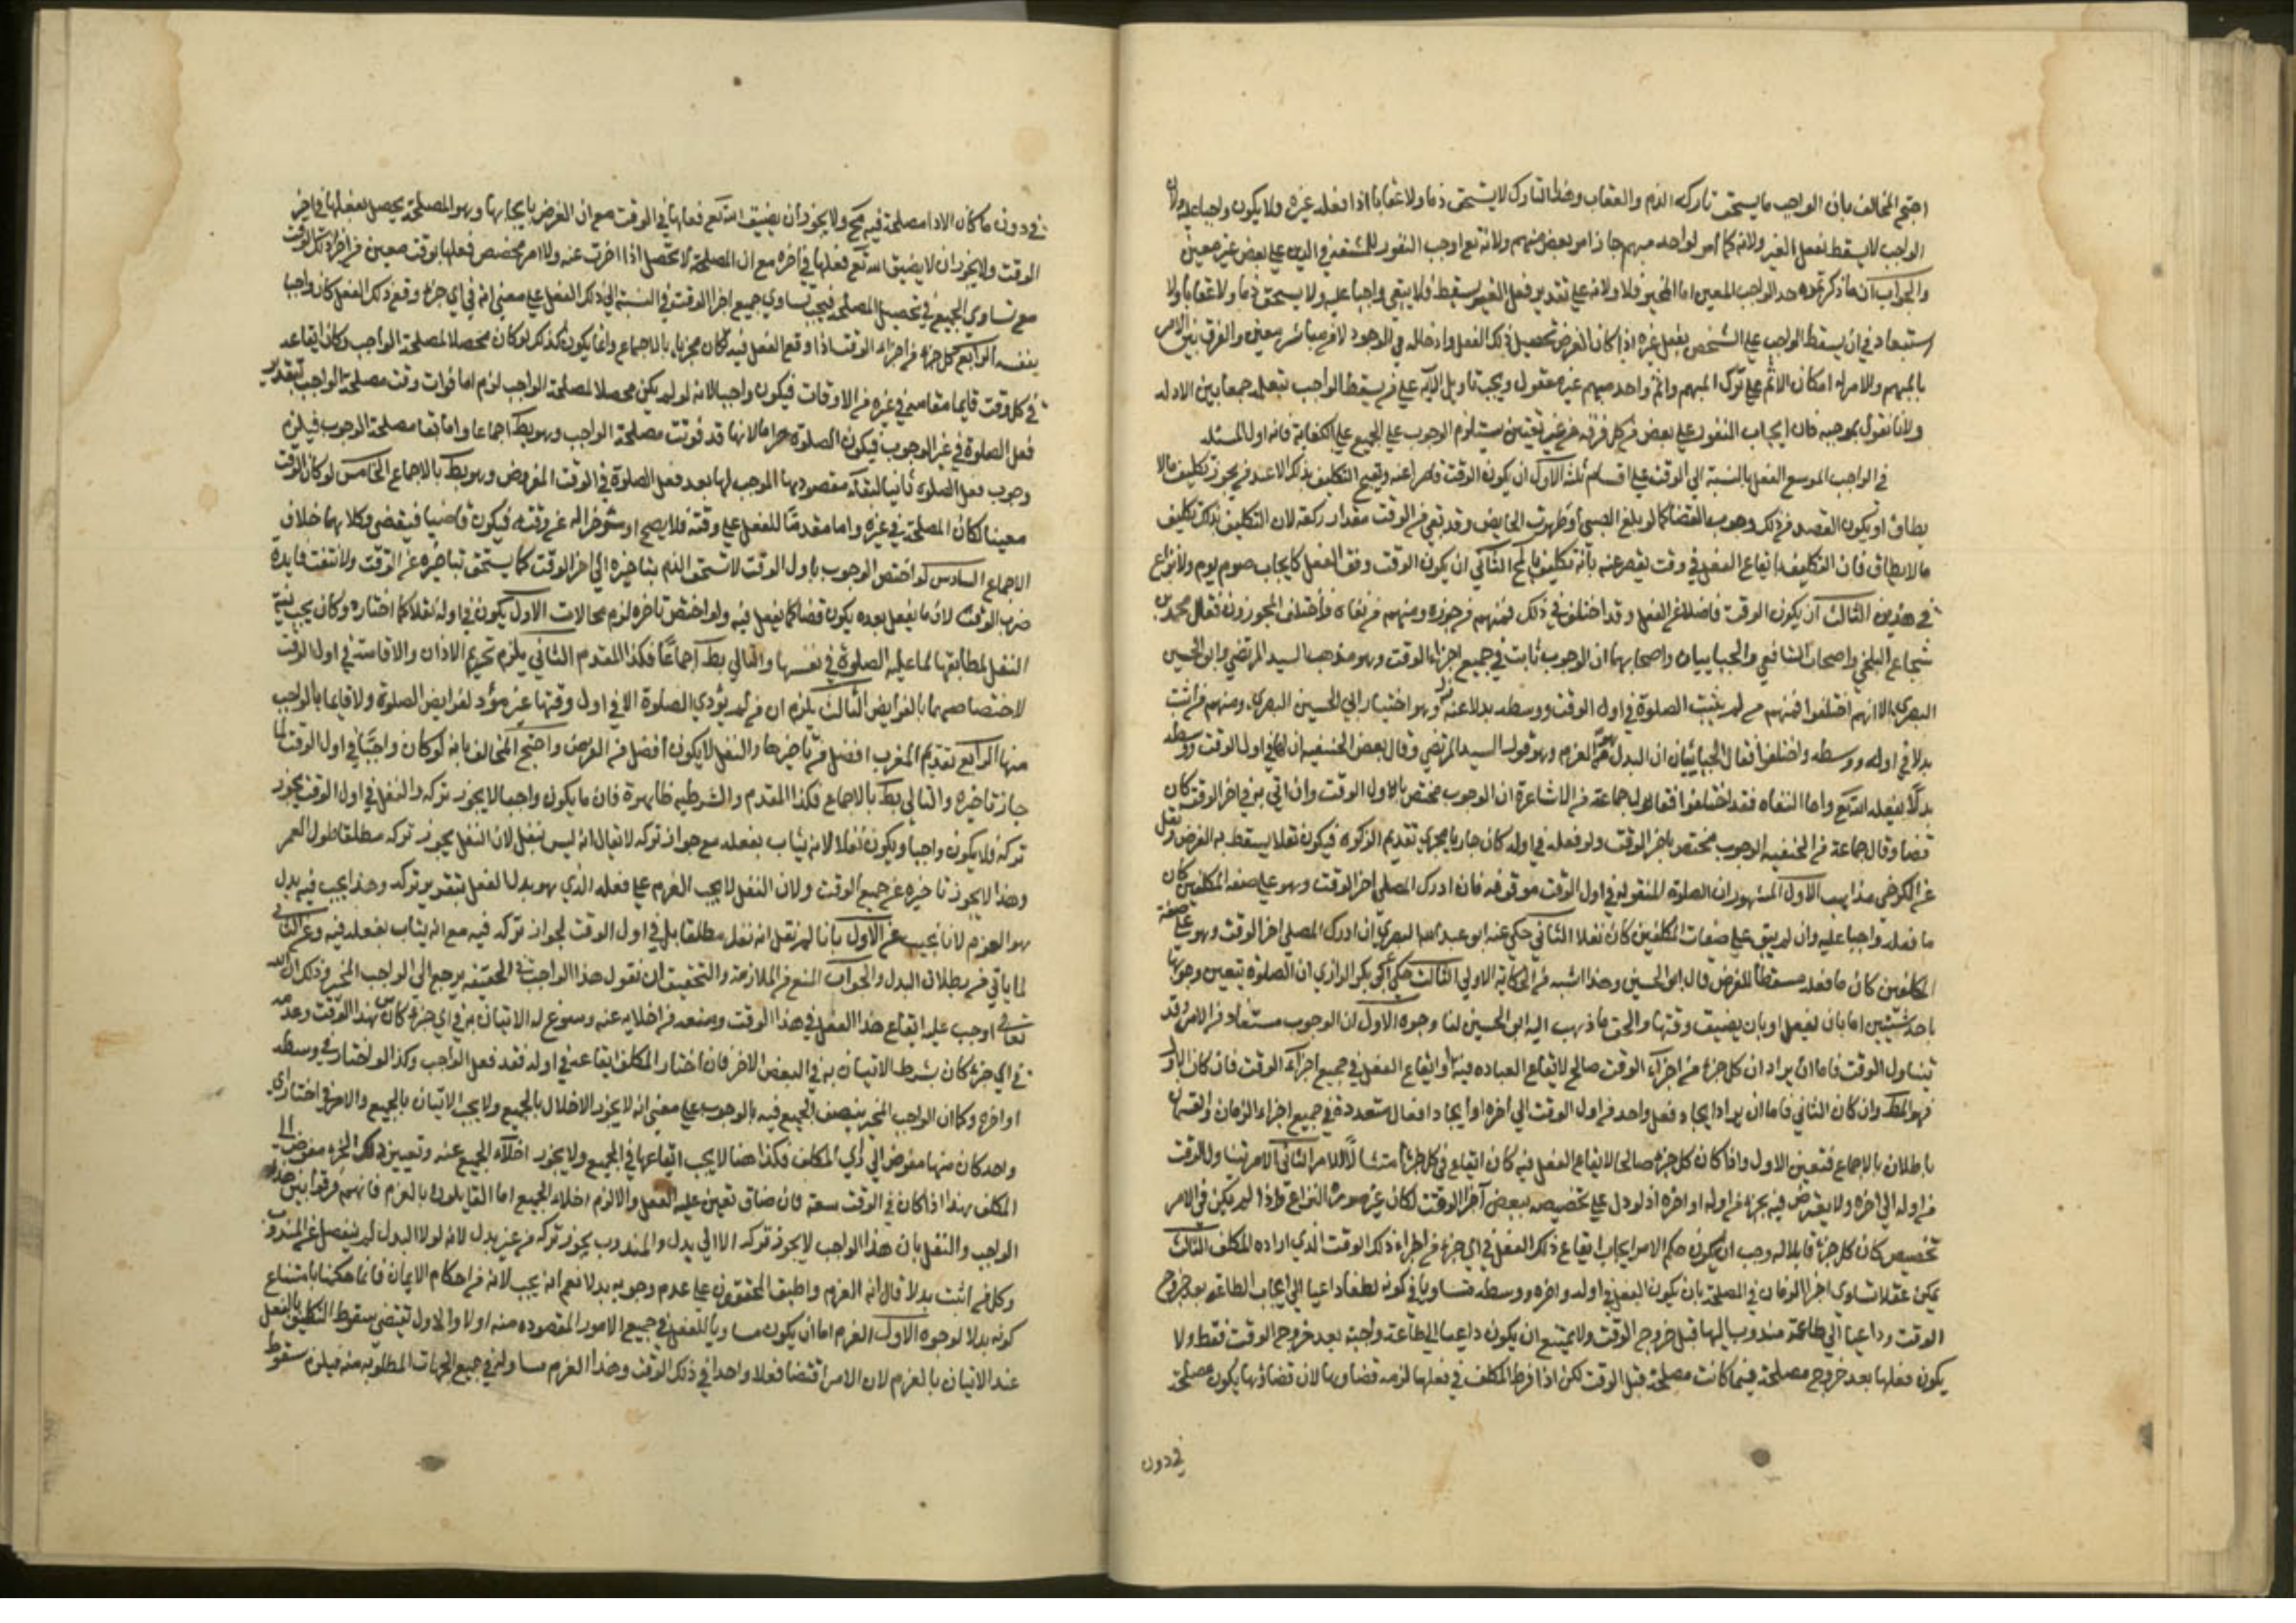 احتج المخالف بان الواجب ما يستحق تاركه الذم والعقاب وهذا التارك لا يستحق ذما ولا عقابا اذا فعله غيره ولا يكون واجبا عليه ولان
الواجب لا يسقط بفعل الغير ولانه كما امر لواحد مبهم جاز امر بعض منهم ولانه تع اوجب النفور للتفقه في الدين على بعض غير معين
والجواب ان ما ذكرتموه حد الواجب المعين اما المخير فلا ولانه على تقدير فعل الغير يسقط فلا يبقى واجبا عليه ولا يستحق ذما ولا عقابا ولا
استبعاد في ان يسقط الواجب على الشخص بفعل غيره اذا كان الغرض تحصيل ذلك الفعل وادخاله في الوجود لا من مباشر معين والفرق بين الامر
بالمبهم والامر له امكان الاثم على ترك المبهم واثم واحد مبهم غير معقول ويجب تاويل الآية على من يسقط الواجب بفعله جمعا بين الادله
ولانا نقول بموجبه فان ايجاب النفور على بعض من كل فرقه من غير تعيين يستلزم الوجوب على الجميع على الكفاية فانه اول المسئله
في الواجب الموسع الفعل بالنسبة الى الوقت على اقسام ثلثة الاول ان يكون الوقت قاصرا عنه ويقبح التكليف بذلك الا عند من يجوز تكليف ما لا
يطاق او يكون القصد من ذلك وجوب القضا كما لو بلغ الصبي او طهرت الحايض وقد بقي من الوقت مقدار ركعة لان التكليف بذلك تكليف
ما لا يطاق فان التكليف بايقاع الفعل في وقت يقصر عنه بانه تكليف بالمح الثاني ان يكون الوقت وفق الفعل كايجاب صوم يوم ولا نزاع
في هذين الثالث ان يكون الوقت فاضلا عن الفعل وقد اختلف في ذلك فمنهم من جوزه ومنهم من نفاه فاختلف المجوزون فقال محمد بن
شجاع البلخي واصحاب الشافعي والجباييان واصحابهما ان الوجوب ثابت في جميع اجزاء الوقت وهو مذهب السيد المرتضى وابو الحسين
البصري الا انهم اختلفوا فمنهم من لم يثبت الصلوة في اول الوقت ووسطه بدلا عنه وهو اختيار ابي الحسين البصري ومنهم من اثبت
بدلا في اوله ووسطه واختلفوا فقال الجبائيان ان البدل هو العزم وهو قول السيد المرتضى وقال بعض الحنفيه ان لها في اول الوقت ووسطه
بدلا يفعله الله تع واما النفاه فقد اختلفوا فقال جماعة من الاشاعرة ان الوجوب مختص باول الوقت وان اتي به في اخر الوقت كان
قضا وقال جماعة من الحنفيه الوجوب مختص باخر الوقت ولو فعله في اوله كان جاريا مجرى تقديم الزكوة فيكون نفلا يسقط به الفرض ونقل
عن الكرخي مذاهب الاول المشهور ان الصلوة المفعوله في اول الوقت موقوفه فان ادرك المصلي اخر الوقت وهو على صفه المكلفين كان
ما فعله واجبا عليه وان لم يبق على صفات المكلفين كان نفلا الثاني حكى عنه ابو عبد الله البصري ان ادرك المصلي اخر الوقت وهو على صفة
المكلفين كان ما فعله مسقطا للفرض قال ابو الحسين وهذا اشبه من الحكاية الاولى الثالث حكي ابو بكر الرازي ان الصلوة يتعين وجوبها
باحد شيئين اما بان يفعل او بان يضيق وقتها والحق ما ذهب اليه ابو الحسين لنا وجوه الاول ان الوجوب مستفاد من الامر وقد
تناول الوقت فاما ان يراد ان كل جزء من اجزاء الوقت صالح لايقاع العباده فيه او ايقاع الفعل في جميع اجزاء الوقت فان كان الاول
فهو المط وان كان الثاني فاما ان يراد ايجاد فعل واحد من اول الوقت الى اخره او ايجاد افعال متعددة في جميع اجزاء الزمان والقسمان
باطلان بالاجماع فتعين الاول واذا كان كل جزء صالحا لايقاع الفعل فيه كان ايقاع في كل جزء امتثالا للامر الثاني الامر تناول الوقت
من اوله الى اخره ولا يعترض فيه بجزء من اوله او اخره اذ لو دل على تخصيصه ببعض اجزاء الوقت لكان غير صورة النزاع واذا لم يكن في الامر
تخصيص كان كل جزء قابلا له وجب ان يكون حكم الامر ايجاب ايقاع ذلك الفعل في اي جزء من اجزاء ذلك الوقت الذي اراده المكلف الثالث
يمكن عقلا تساوي اجزاء الزمان في المصلحة بان يكون الفعل في اوله واخره ووسطه متساويا في كونه لطفا داعيا الى ايجاب الطاعه بعد خروج
الوقت وداعيا الى طاعة مندوب اليها قبل خروج الوقت ولا يمتنع ان يكون داعيا الى طاعة واجبة بعد خروج الوقت فقط ولا
يكون فعلها بعد خروجه مصلحة فيما كانت مصلحة قبل الوقت لكن اذا فرط المكلف في فعلها لزمه قضاوها لان قضاؤها يكون مصلحة
في دون
في دون ما كان الادا مصلحة فيه مح ولا يجوز ان يضيق الله تع فعلها في الوقت مع ان الغرض بايجابها وهو المصلحة يحصل بفعلها في اخر
الوقت ولا يجوز ان لا يضيق الله تع فعلها في اخره مع ان المصلحة لا تحصل اذا اخرت عنه ولا امر مخصص فعلها بوقت معين من اجزاء ذلك الوقت
مع تساوي الجميع في تحصيل المصلحة فيجب تساوي جميع اجزا الوقت في النسبة الى ذلك الفعل على معنى انه في اي جزء وقع ذلك الفعل كان واجبا
بنفسه الرابع كل جزء من اجزاء الوقت اذا وقع الفعل فيه كان مجزيا بالاجماع وانما يكون كذلك لو كان محصلا لمصلحة الواجب وكان ايقاعه
في كل وقت قايما مقامه في غيره من الاوقات فيكون واجبا لانه لو لم يكن محصلا لمصلحة الواجب لزم اما فوات وقت مصلحة الواجب بتقدير
فعل الصلوة في غير الوجوب فيكون الصلوة حراما لانها قد فوتت مصلحة الواجب وهو بط اجماعا واما بقا مصلحة الوجوب فيلزم
وجوب فعل الصلوة ثانيا لبقاء مقصودها الموجب لها بعد فعل الصلوة في الوقت المفروض وهو بط بالاجماع الخامس لو كان الوقت
معينا لكان المصلحة في غيره واما مقدما للفعل على وقته فلا يصح او مؤخرا له عن وقته فيكون قاضيا فيقضي وكلاهما خلاف
الاجماع السادس لو اختص الوجوب باول الوقت لاستحق الذم بتاخيره الى اخر الوقت كما يستحق بتاخيره عن الوقت ولانتفت فايدة
ضرب الوقت لان ما يفعل بعده يكون قضا كما يفعل فيه ولو اختص باخره لزم محالات الاول يكون في اوله نفلا كما اختاره وكان يجب بنية
النفل لمطابقتها لما عليه الصلوة في نفسها والتالي بط اجماعا فكذا المقدم الثاني يلزم تحريم الاذان والاقامة في اول الوقت
لاختصاصهما بالفرايض الثالث يلزم ان من لم يؤدي الصلوة الا في اول وقتها غير مؤد لفرايض الصلوة ولا قايما بالواجب
منها الرابع تقديم المغرب افضل من تاخيرها والنفل لا يكون افضل من الفرض واحتج المخالف بانه لو كان واجبا في اول الوقت لما
جاز تاخيره والتالي بط بالاجماع فكذا المقدم والشرطيه ظاهرة فان ما يكون واجبا لا يجوز تركه والنفل في اول الوقت يجوز
تركه فلا يكون واجبا ويكون نفلا لانه يثاب بفعله مع جواز تركه لا يقال انه ليس بنفل لان النفل يجوز تركه مطلقا طول العمر
وهذا لا يجوز تاخيره عن جميع الوقت ولان النفل لا يجب العزم على فعله الذي هو بدل الفعل بتقدير تركه وهذا يجب فيه بدل
هو العزم لانا نجيب عن الاول بانا لم نقل انه نفل مطلقا بل في اول الوقت لجواز تركه فيه مع انه يثاب بفعله فيه وعن الثاني
لما ياتي من بطلان البدل والجواب المنع من الملازمة والتحقيق ان نقول هذا الواجب في الحقيقه يرجع الى الواجب المخير وذلك ان الله
تعالى اوجب عليه ايقاع هذا الفعل في هذا الوقت ومنعه من اخلايه عنه وسوغ له الاتيان به في اي جزء كان من هذا الوقت وحده
في اي جزء كان بشرط الاتيان به في البعض الاخر فان اختار المكلف ايقاعه في اوله فقد فعل الواجب وكذا لو اختار في وسطه
او اخره وكما ان الواجب المخير يتصف الجميع فيه بالوجوب على معنى انه لا يجوز الاخلال بالجميع ولا يجب الاتيان بالجميع والامر في اختيار اي
واحد كان منها مفوض الى راي المكلف فكذا هنا لا يجب ايقاعها في الجميع ولا يجوز اخلاء الجميع عنه وتعيين ذلك الجزء مفوض الى
المكلف هذا اذا كان في الوقت سعة فان ضاق تعين عليه الفعل والا لزم اخلاء الجميع اما القايلون بالعزم فانهم فرقوا بين هذا
الواجب والنفل بان هذا الواجب لا يجوز تركه الا الى بدل والمندوب يجوز تركه من غير بدل لانه لولا البدل لم ينفصل عن المندوب
وكل من اثبت بدلا قال انه العزم واطبق المحققون على عدم وجوبه بدلا نعم انه يجب لانه من احكام الايمان فانما حكمنا بامتناع
كونه بدلا لوجوه الاول العزم اما ان يكون مساويا للفعل في جميع الامور المقصوده منه او لا والاول يقتضي سقوط التكليف بالفعل
عند الاتيان بالعزم لان الامر اقتضا فعلا واحدا في ذلك الوقت وهذا العزم مساو له في جميع الجهات المطلوبه منه فيلزم سقوط